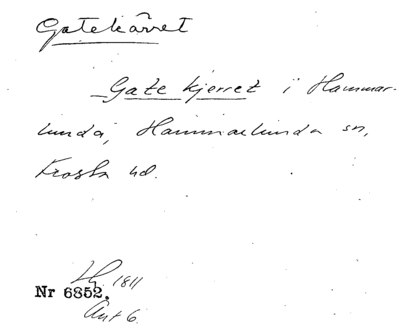 Gatekärret
Gate kjerret i Hammar-
lunda, Hammarlunda sn,
Frosta hd.
1811
Nr 6852.
Ant 6.